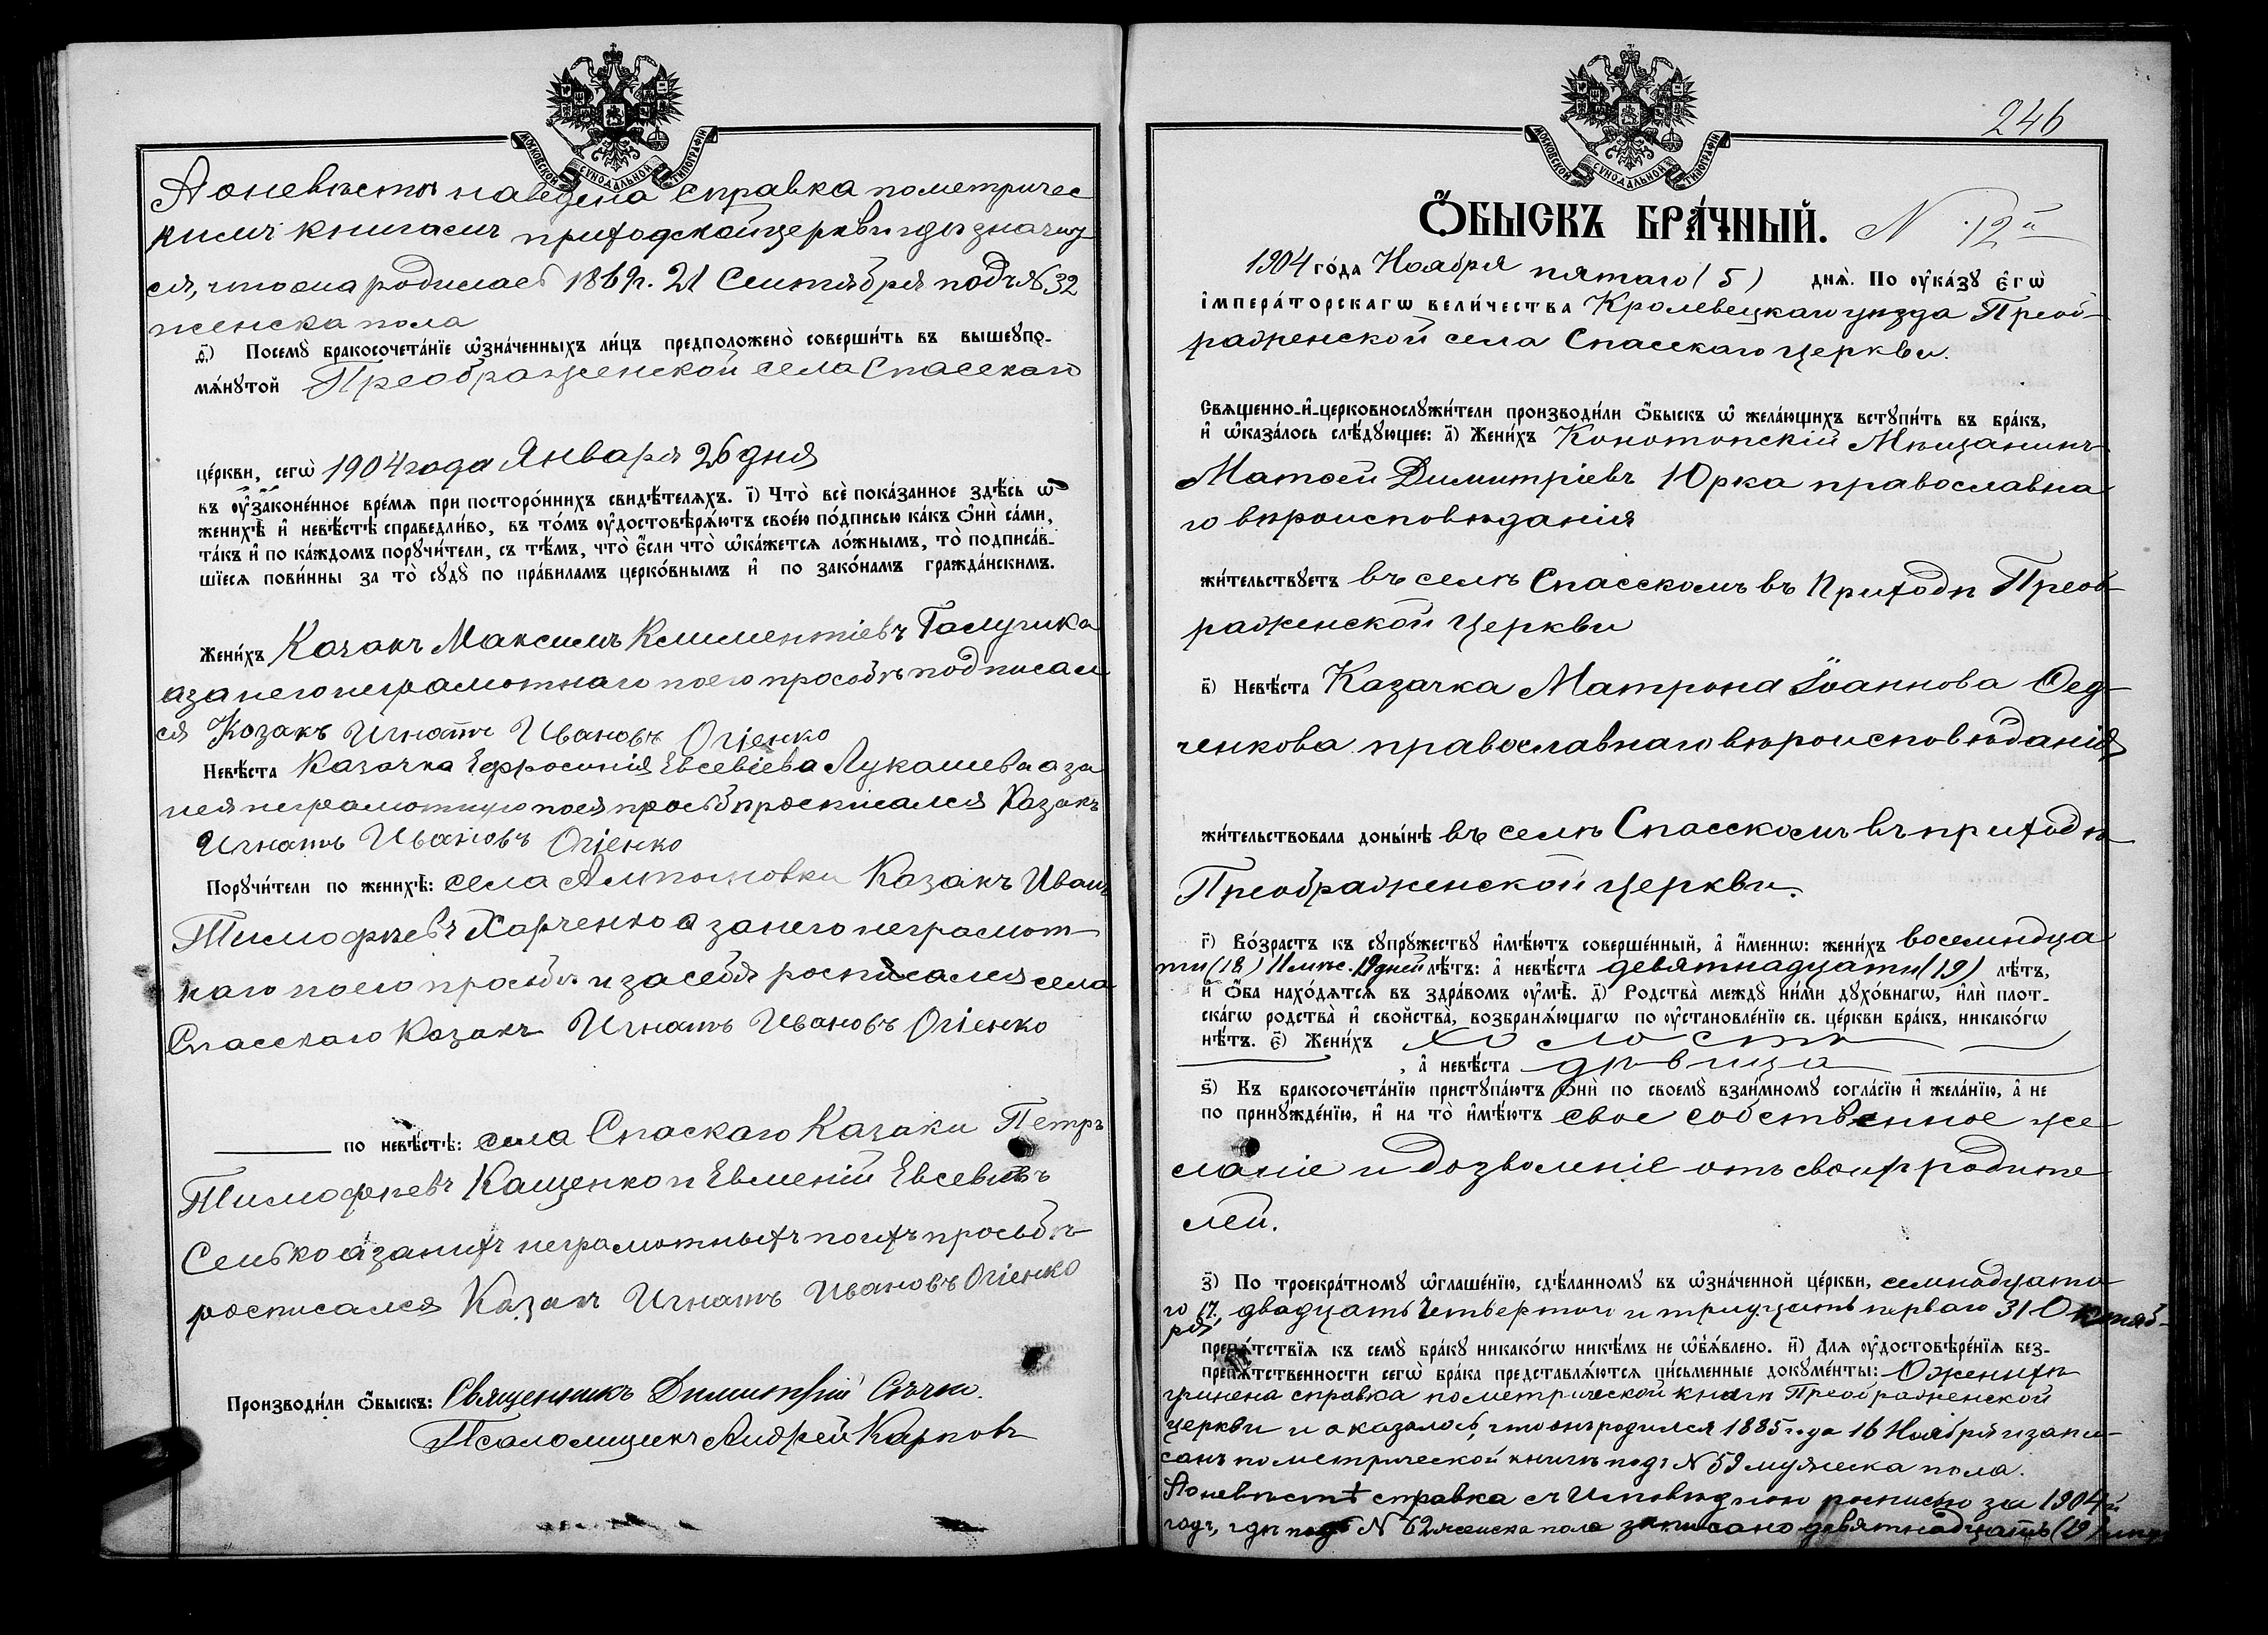 МОСКОВСКОЙ СѴНОДАЛЬНОЙ ТИПОГРАФІИ
А оневѣсты наведена справка пометричес
кимъ книгамъ приходской церкви гдѣ значит
ся, что она родилась 1869г. 21 Сентября подъ №32
женска пола
д҃) Посемꙋ̀ бракосочета́нїе ѡ҆зна́ченныхъ ли́цъ предположено̀ соверши́ть въ вышеꙋпо-
мѧ́нꙋтой Преображенской села Спасскаго
це́ркви, сегѡ̀ 1904 года Января 26 дня
въ ᲂу҆зако́ненное вре́мѧ при посторо́ннихъ свидѣ́телѧхъ. і҃) Что̀ всѐ пока́занное здѣ́сь ѡ҆
женихѣ̀ и҆ невѣ́стѣ справедли́во, въ то́мъ ᲂу҆достовѣрѧ́ютъ свое́ю по́дписью ка́къ ѻ҆нѝ са́ми,
та́къ и҆ по ка́ждомъ порꙋчи́тели, съ тѣ́мъ, что̀ є҆́сли что̀ ѡ҆ка́жетсѧ ло́жнымъ, то̀ подписа́в-
шїесѧ пови́нны за то̀ сꙋдꙋ̀ по пра́виламъ церко́внымъ и҆ по зако́намъ гражда́нскимъ.
Жени́хъ Козакъ Максимъ Климентіевъ Галушка
а за него неграмотнаго по его просьбѣ подписал
ся Козакъ Игнатъ Ивановъ Огіенко
Невѣ́ста Казачка Ефросинія Евсевіева Лукашева а за
нея неграмотную по ея просьбѣ росписался Казакъ
Игнатъ Ивановъ Огіенко
Порꙋчи́тели по женихѣ̀: села Алтыновки Казакъ Иванъ
Тимофѣевъ Харченко а за него неграмот-
наго по его просьбѣ и за себя росписался села
Спасскаго Казакъ Игнатъ Ивановъ Огіенко
по невѣ́стѣ: села Спаскаго Казаки Петръ
Тимофѣевъ Кащенко и Евменій Евсевіевъ
Семько а за нихъ неграмотныхъ по ихъ просьбѣ
росписался Казакъ Игнатъ Ивановъ Огіенко
Производи́ли ѻ҆́быскъ: Священникъ Димитрій
Псаломщикъ Андрей Карповъ
246
МОСКОВСКОЙ СѴНОДАЛЬНОЙ ТИПОГРАФІИ
Ѻ҆́БЫСКЪ БРА́ЧНЫЙ. N 12й
1904 го́да Ноября пятаго (5) днѧ̀. По ᲂу҆ка́зꙋ є҆гѡ̀
і҆мпера́торскагѡ вели́чества Кролевецкаго уѣзда Преоб-
раженской села Спасскаго церкви.
Свѧщенно-и҆-церковнослꙋжи́тели производи́ли ѻ҆́быскъ ѡ҆ жела́ющихъ встꙋпи́ть въ бра́къ,
и҆ ѡ҆каза́лось слѣ́дꙋющее: а҃) Жени́хъ Конотопскій Мѣщанинъ
Матѳей Димитріевъ Юрка православна
го вѣроисповѣданія
жи́тельствꙋетъ въ селѣ Спасскомъ въ Приходѣ Преоб-
раженской Церкви
в҃) Невѣ́ста Казачка Матрона Іоаннова Сед-
ченкова православнаго вѣроисповѣданія
жи́тельствовала доны́нѣ въ селѣ Спасскомъ въ приходѣ
Преображенской церкви.
г҃) Во́зрастъ къ сꙋпрꙋ́жествꙋ и҆мѣ́ютъ соверше́нный, а҆ и҆́менно: жени́хъ восемнадца
ти (18) 11 мѣс. 19 дней лѣ́тъ: а҆ невѣ́ста девятнадцати (19) лѣ́тъ,
и҆ ѻ҆́ба нахо́дѧтсѧ въ здра́вомъ ᲂу҆мѣ̀. д҃) Родства̀ междꙋ̀ ни́ми дꙋхо́внагѡ, и҆лѝ плот-
ска́гѡ родства̀ и҆ сво́йства, возбранѧ́ющагѡ по ᲂу҆становле́нїю св. це́ркви бра́къ, никако́гѡ
нѣ́тъ. є҃) Жени́хъ холостъ
, а҆ невѣ́ста дѣвица
ѕ҃) Къ бракосочета́нїю пристꙋпа́ютъ ѻ҆нѝ по своемꙋ̀ взаи́мномꙋ согла́сїю и҆ жела́нїю, а҆ не
по принꙋжде́нїю, и҆ на то̀ и҆мѣ́ютъ свое собственное же
ланіе и дозволеніе отъ своихъ родите
лей.
з҃) По троекра́тномꙋ ѡ҆глаше́нїю, сдѣ́ланномꙋ въ ѡ҆зна́ченной це́ркви, семнадцата
го 17, двадцать четвертаго и тридцать перваго 31 Октяб-
ря
препѧ́тствїѧ къ семꙋ̀ бра́кꙋ никако́гѡ никѣ́мъ не ѡ҆б̾ѧ́влено. и҃) Длѧ ᲂу҆достовѣре́нїѧ без-
препѧ́тственности сегѡ̀ бра́ка представлѧ́ютсѧ пи́сьменные докꙋме́нты: О женихѣ
учинена справка по метрической книгѣ Преображенской
Церкви и оказалось, что онъ родился 1885 года 16 Ноября и запи-
санъ по метрической книгѣ подъ N 59 мужеска пола.
А о невѣстѣ справка съ Исповѣдною росписью за 1904 й
годъ, гдѣ подъ N 62 женска пола записано девятнадцать (19)